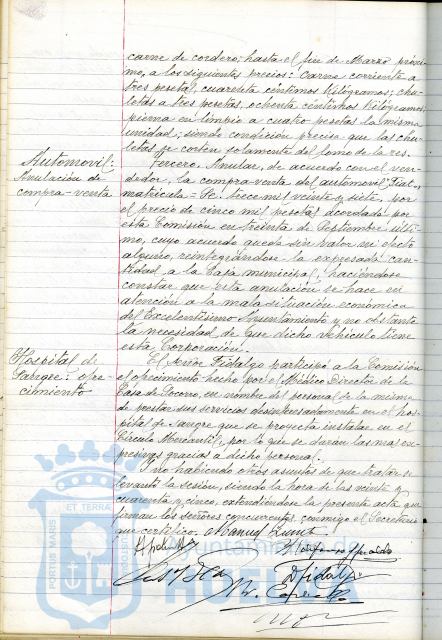 carne de cordero; hasta el fin de Marzo próxi-
mo, a los siguientes precios: Carne corriente a
tres pesetas, cuarenta céntimos kilógramos; chu-
letas a tres pesetas, ochenta céntimos kilógramos;
pierna en limpio a cuatro pesetas la misma
unidad; siendo condición precisa que las chu-
letas se corten solamente del lomo de la res.
Automovil:
Anulación de
compra-venta
Tercero. Anular, de acuerdo con el ven-
dedor, la compra-venta del automovil "Fiat",
matrícula = Se. trece mil veinte y siete, por
el precio de cinco mil pesetas acordada por
esta Comisión en treinta de Septiembre últi-
mo, cuyo acuerdo queda sin valor ni efecto
alguno, reintegrándose la expresada can-
tidad a la Casa municipal, haciéndose
constar que esta anulación se hace en
atención a la mala situación económica
del Excelentísimo Ayuntamiento y no obstante
la necesidad de que dicho vehículo tiene
esta Corporación.
Hospital de
Sangre: ofre-
cimiento
El señor Fidalgo participó a la Comisión
el ofrecimiento hecho por el Médico Director de la
Casa de Socorro, en nombre del personal de la misma
de prestar sus servicios desinteresadamente en el hos-
pital de sangre que se proyecta instalar en el
Círculo Mercantil, por lo que se darán las mas ex-
presivas gracias a dicho personal.
Y no habiendo otros asuntos de que tratar se
levantó la sesión, siendo la hora de las veinte y
cuarenta y cinco, extendiéndose la presente acta que
firman los señores concurrentes, conmigo el Secretario
que certifico.
D Fidalgo
PORTUS MARIS
ET TERRA
CUSTODIA
Ayuntamiento de
HUELVA